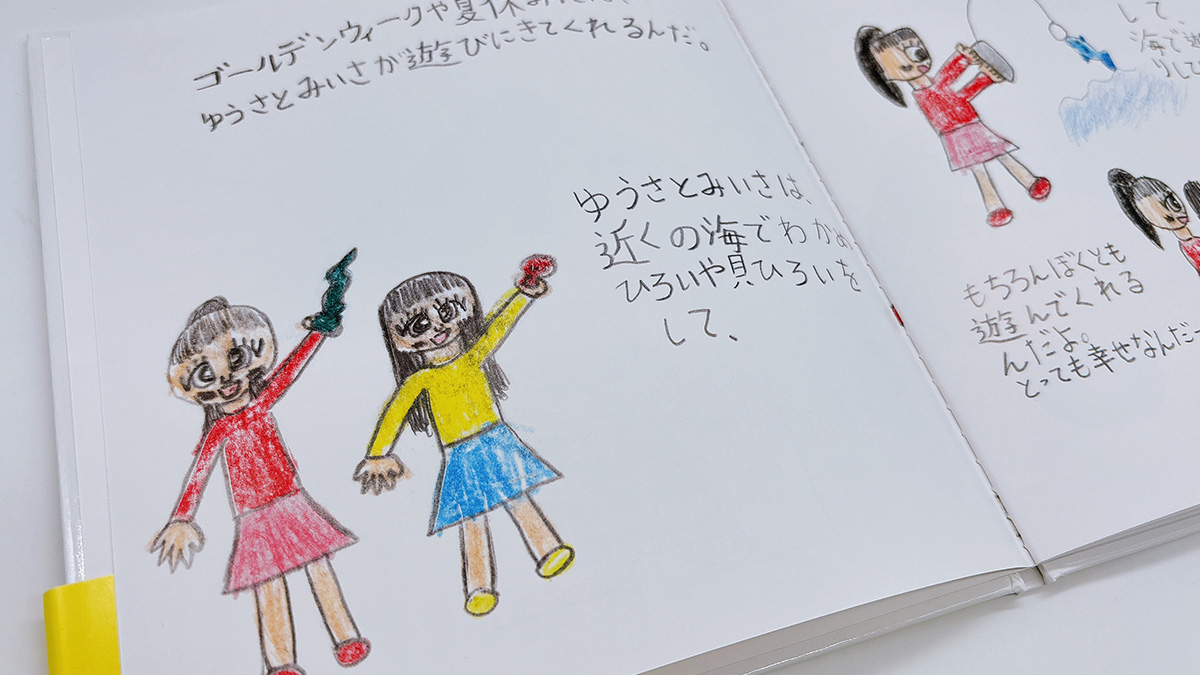 ゴールデンウィークや夏休み
ゆうさとみいさが遊びにきてくれるんだ。
ゆうさとみいさは、
近くの海でわかめ
ひろいや貝ひろいを
して、
して、
海で
りし
もちろんぼくとも
遊んでくれる
んだよ。
とっても幸せなんだ